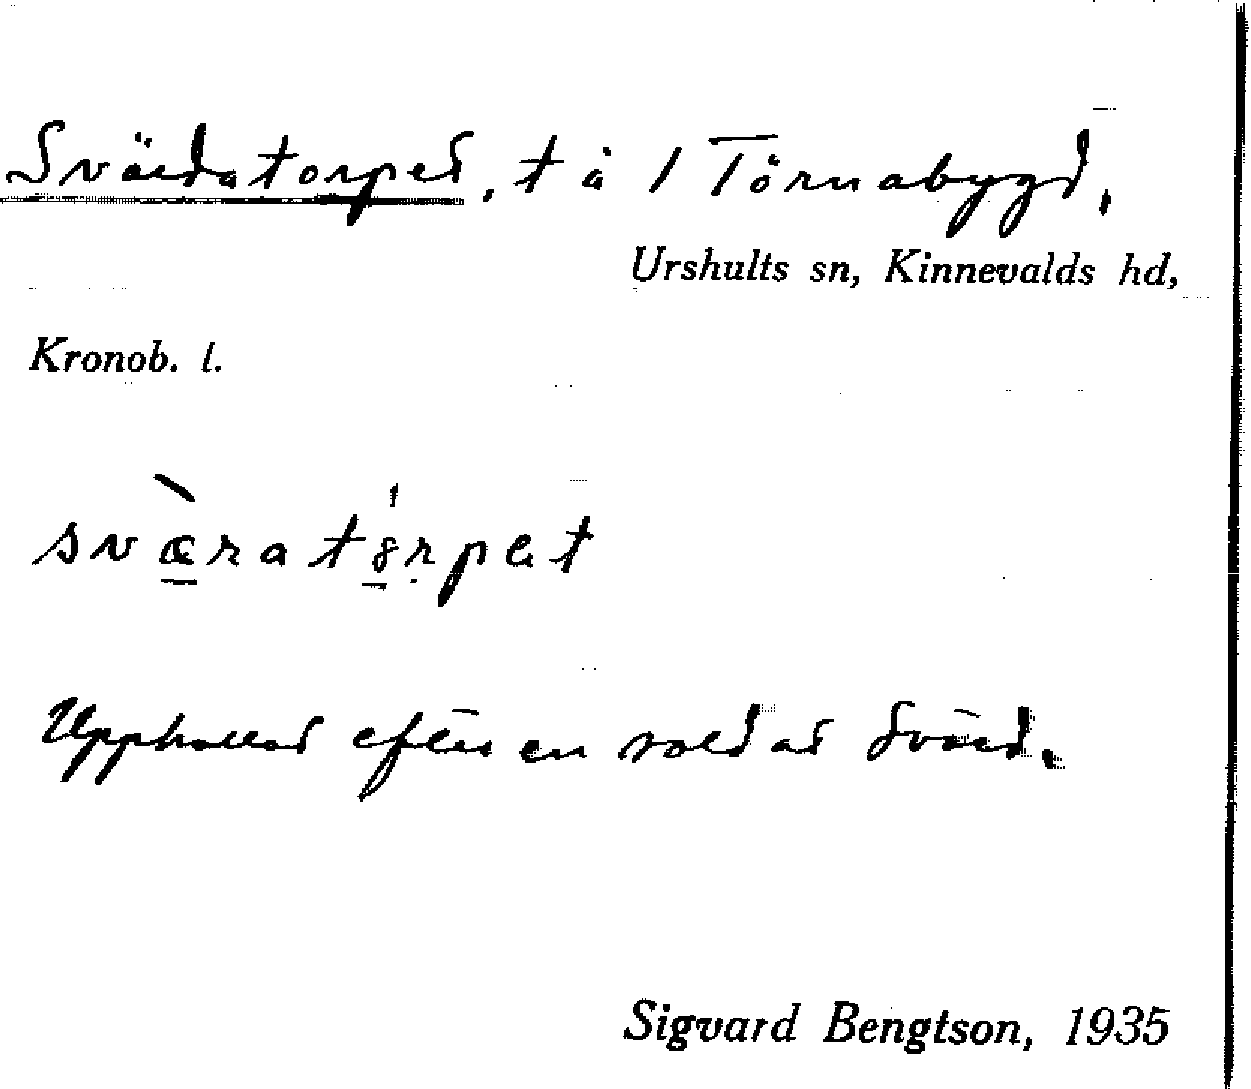 Svärdatorpet, t å 1 Törnabygd,
Urshults sn, Kinnevalds hd,
Kronob. l.
svæ̀ratȯrpet
Uppkallat efter en soldat Svärd.
Sigvard Bengtson, 1935